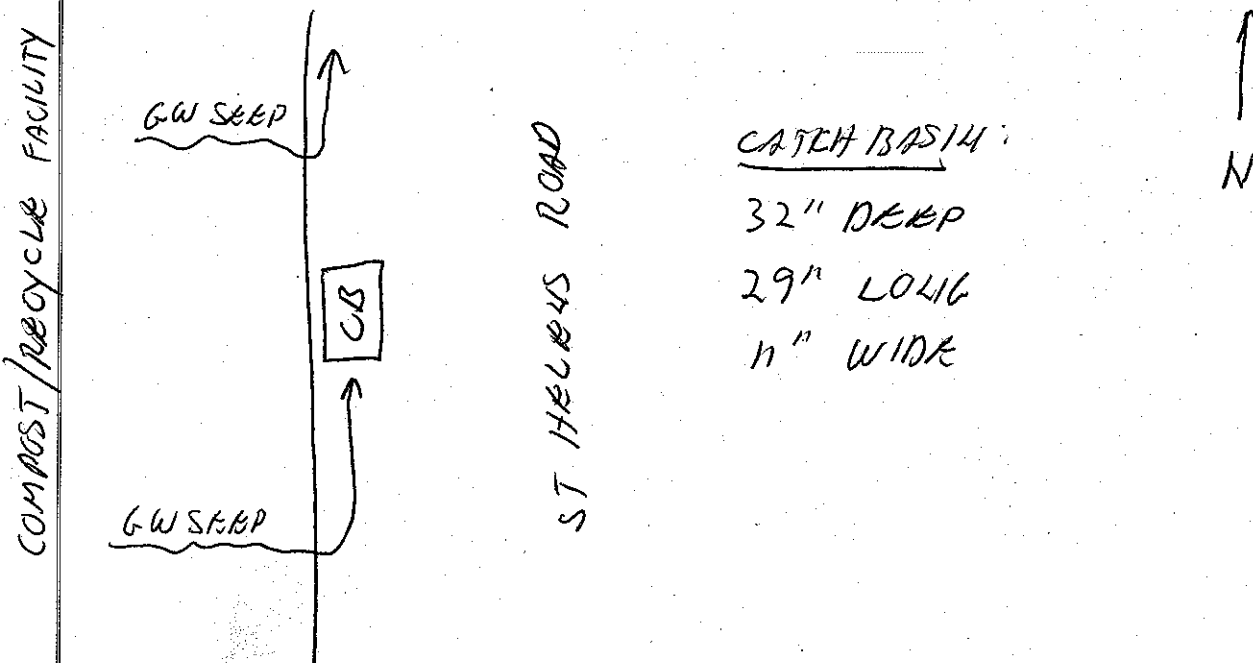 COMPOST/RECYCLE FACILITY
GW SEEP
CB
GW SEEP
ST HELENS ROAD
CATCH BASIN:
32" DEEP
29" LONG
" WIDE
N